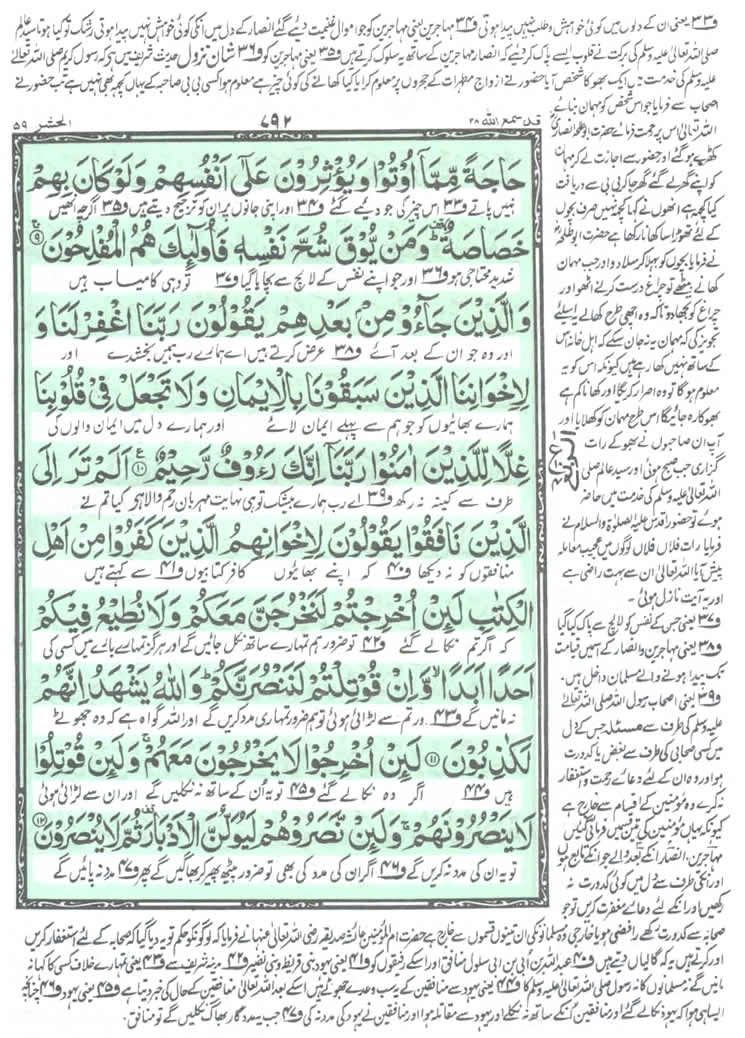 و۳۳ یعنی ان کے دلوں میں کوئی خواہش و طلب نہیں پیدا ہوتی و۳۴ مہاجرین یعنی مہاجرین کو جو اموال غنیمت دیے گئے انصار کے دل میں انکی کوئی خواہش نہیں پیدا ہوتی رشک تو کیا ہوتا سید عالم
صلی اللہ تعالیٰ علیہ وسلم کی برکت نے قلوب ایسے پاک کر دیے کہ انصار مہاجرین کے ساتھ یہ سلوک کرتے ہیں و۳۵ یعنی مہاجرین کو و۳۶ شان نزول حدیث شریف میں ہے کہ رسول کریم صلی اللہ تعالیٰ
علیہ وسلم کی خدمت میں ایک بھوکا شخص آیا حضور نے ازواج مطہرات کے حجروں پر معلوم کرایا کیا کھانے کی کوئی چیز ہے معلوم ہوا کسی بی بی صاحبہ کے یہاں کچھ بھی نہیں ہے تب حضور نے
قد سمع اللہ ۲۸
۷۹۲
الحشر ۵۹
حَاجَةً مِّمَّآ اُوْتُوْا وَيُؤْثِرُوْنَ عَلٰٓى اَنْفُسِهِمْ وَلَوْ كَانَ بِهِمْ
نہیں پاتے و۳۳ اس چیز کی جو دیے گئے و۳۴ اور اپنی جانوں پر ان کو ترجیح دیتے ہیں و۳۵ اگرچہ انھیں
خَصَاصَةٌ ۫ وَمَنْ يُّوْقَ شُحَّ نَفْسِهٖ فَاُولٰٓىِٕكَ هُمُ الْمُفْلِحُوْنَ ۹
شدید محتاجی ہو و۳۶ اور جو اپنے نفس کے لالچ سے بچایا گیا و۳۷ تو وہی کامیاب ہیں
وَالَّذِيْنَ جَآءُوْ مِنْۢ بَعْدِهِمْ يَقُوْلُوْنَ رَبَّنَا اغْفِرْ لَنَا وَ
اور وہ جو ان کے بعد آئے و۳۸ عرض کرتے ہیں اے ہمارے رب ہمیں بخشدے اور
لِاِخْوَانِنَا الَّذِيْنَ سَبَقُوْنَا بِالْاِيْمَانِ وَلَا تَجْعَلْ فِيْ قُلُوْبِنَا
ہمارے بھائیوں کو جو ہم سے پہلے ایمان لائے اور ہمارے دل میں ایمان والوں کی
غِلًّا لِّلَّذِيْنَ اٰمَنُوْا رَبَّنَآ اِنَّكَ رَءُوْفٌ رَّحِيْمٌ ۱۰ اَلَمْ تَرَ اِلَى
طرف سے کینہ نہ رکھ و۳۹ اے رب ہمارے بیشک تو ہی نہایت مہربان رحم والا ہے کیا تم نے
الَّذِيْنَ نَافَقُوْا يَقُوْلُوْنَ لِاِخْوَانِهِمُ الَّذِيْنَ كَفَرُوْا مِنْ اَهْلِ
منافقوں کو نہ دیکھا و۴۰ کہ اپنے بھائیوں کافر کتابیوں و۴۱ سے کہتے ہیں
الْكِتٰبِ لَىِٕنْ اُخْرِجْتُمْ لَنَخْرُجَنَّ مَعَكُمْ وَلَا نُطِيْعُ فِيْكُمْ
کہ اگر تم نکالے گئے و۴۲ تو ضرور ہم تمہارے ساتھ نکل جائیں گے اور ہرگز تمہارے بارے میں کسی کی
اَحَدًا اَبَدًا ۙ وَّاِنْ قُوْتِلْتُمْ لَنَنْصُرَنَّكُمْ وَاللّٰهُ يَشْهَدُ اِنَّهُمْ
نہ مانیں گے و۴۳ اور تم سے لڑائی ہوئی تو ہم ضرور تمہاری مدد کریں گے اور اللہ گواہ ہے کہ وہ جھوٹے
لَكٰذِبُوْنَ ۱۱ لَىِٕنْ اُخْرِجُوْا لَا يَخْرُجُوْنَ مَعَهُمْ ۚ وَلَىِٕنْ قُوْتِلُوْا
ہیں و۴۴ اگر وہ نکالے گئے و۴۵ تو یہ ان کے ساتھ نہ نکلیں گے اور ان سے لڑائی ہوئی
لَا يَنْصُرُوْنَهُمْ ۚ وَلَىِٕنْ نَّصَرُوْهُمْ لَيُوَلُّنَّ الْاَدْبَارَ ۫ ثُمَّ لَا يُنْصَرُوْنَ ۱۲
تو یہ ان کی مدد نہ کریں گے و۴۶ اگر ان کی مدد کی بھی تو ضرور پیٹھ پھیر کر بھاگیں گے پھر و۴۷ مدد نہ پائیں گے
اصحاب سے فرمایا جو اس شخص کو مہمان بنائے
اللہ تعالیٰ اس پر رحمت فرمائے حضرت ابو طلحہ انصاری
کھڑے ہو گئے اور حضور سے اجازت لے کر مہمان
کو اپنے گھر لے گئے گھر جا کر بی بی سے دریافت
کیا کچھ ہے انھوں نے کہا کچھ نہیں صرف بچوں
کے لئے تھوڑا سا کھانا رکھا ہے حضرت ابو طلحہ
نے فرمایا بچوں کو بہلا کر سلا دو اور جب مہمان
کھانے بیٹھے تو چراغ درست کرنے اٹھو اور
چراغ کو بجھا دو تاکہ وہ اچھی طرح کھا لے یہ اسلئے
تجویز کی کہ مہمان یہ نہ جان سکے کہ اہل خانہ اس
کے ساتھ نہیں کھا رہے ہیں کیونکہ اس کو یہ
معلوم ہوگا تو وہ اصرار کریگا اور کھانا کم ہے
بھوکا رہ جائیگا اس طرح مہمان کو کھلایا اور
آپ ان صاحبوں نے بھوکے رات
گزاری جب صبح ہوئی اور سید عالم صلی
اللہ تعالیٰ علیہ وسلم کی خدمت میں حاضر
ہوئے تو حضور اقدس علیہ الصلوٰۃ والسلام نے
فرمایا رات فلاں فلاں لوگوں میں عجیب معاملہ
پیش آیا اللہ تعالیٰ ان سے بہت راضی ہے
اور یہ آیت نازل ہوئی۔
و۳۷ یعنی جس کے نفس کو لالچ سے پاک کیا گیا
و۳۸ یعنی مہاجرین و انصار کے اسمیں قیامت
تک پیدا ہونے والے مسلمان داخل ہیں۔
و۳۹ یعنی اصحاب رسول اللہ صلی اللہ تعالیٰ
علیہ وسلم کی طرف سے مسئلہ جس کے دل
میں کسی صحابی کی طرف سے بغض یا کدورت
ہو اور وہ ان کے لئے دعائے رحمت و استغفار
نہ کرے وہ مؤمنین کے اقسام سے خارج ہے
کیونکہ یہاں مؤمنین کی تین قسمیں فرمائی گئیں
مہاجرین، انصار انکے بعد والے جو انکے تابع ہوں
اور انکی طرف سے دل میں کوئی کدورت نہ
رکھیں اور انکے لئے دعائے مغفرت کریں تو جو
صحابہ سے کدورت رکھے رافضی ہو یا خارجی وہ مسلمانوں کی ان تینوں قسموں سے خارج ہے حضرت ام المؤمنین عائشہ صدیقہ رضی اللہ تعالیٰ عنہا نے فرمایا کہ لوگوں کو حکم تو یہ دیا گیا کہ صحابہ کے لئے استغفار کریں
اور کرتے ہیں یہ کہ گالیاں دیتے ہیں و۴۰ عبداللہ بن ابی بن ابی سلول منافق اور اسکے رفیقوں کو و۴۱ یعنی یہود بنی قریظہ و بنی نضیر و۴۲ مدینہ شریف سے و۴۳ یعنی تمہارے خلاف کسی کا کہا نہ
مانیں گے نہ مسلمانوں کا نہ رسول صلی اللہ تعالیٰ علیہ وسلم کا و۴۴ یعنی یہود سے منافقین کے یہ سب وعدے جھوٹے ہیں اسکے بعد اللہ تعالیٰ منافقین کے حال کی خبر دیتا ہے و۴۵ یعنی یہود و۴۶ چنانچہ
ایسا ہی ہوا کہ یہود نکالے گئے اور منافقین انکے ساتھ نہ نکلے اور یہود سے مقاتلہ ہوا اور منافقین نے یہود کی مدد نہ کی و۴۷ جب یہ مددگار بھاگ نکلیں گے تو منافق۔